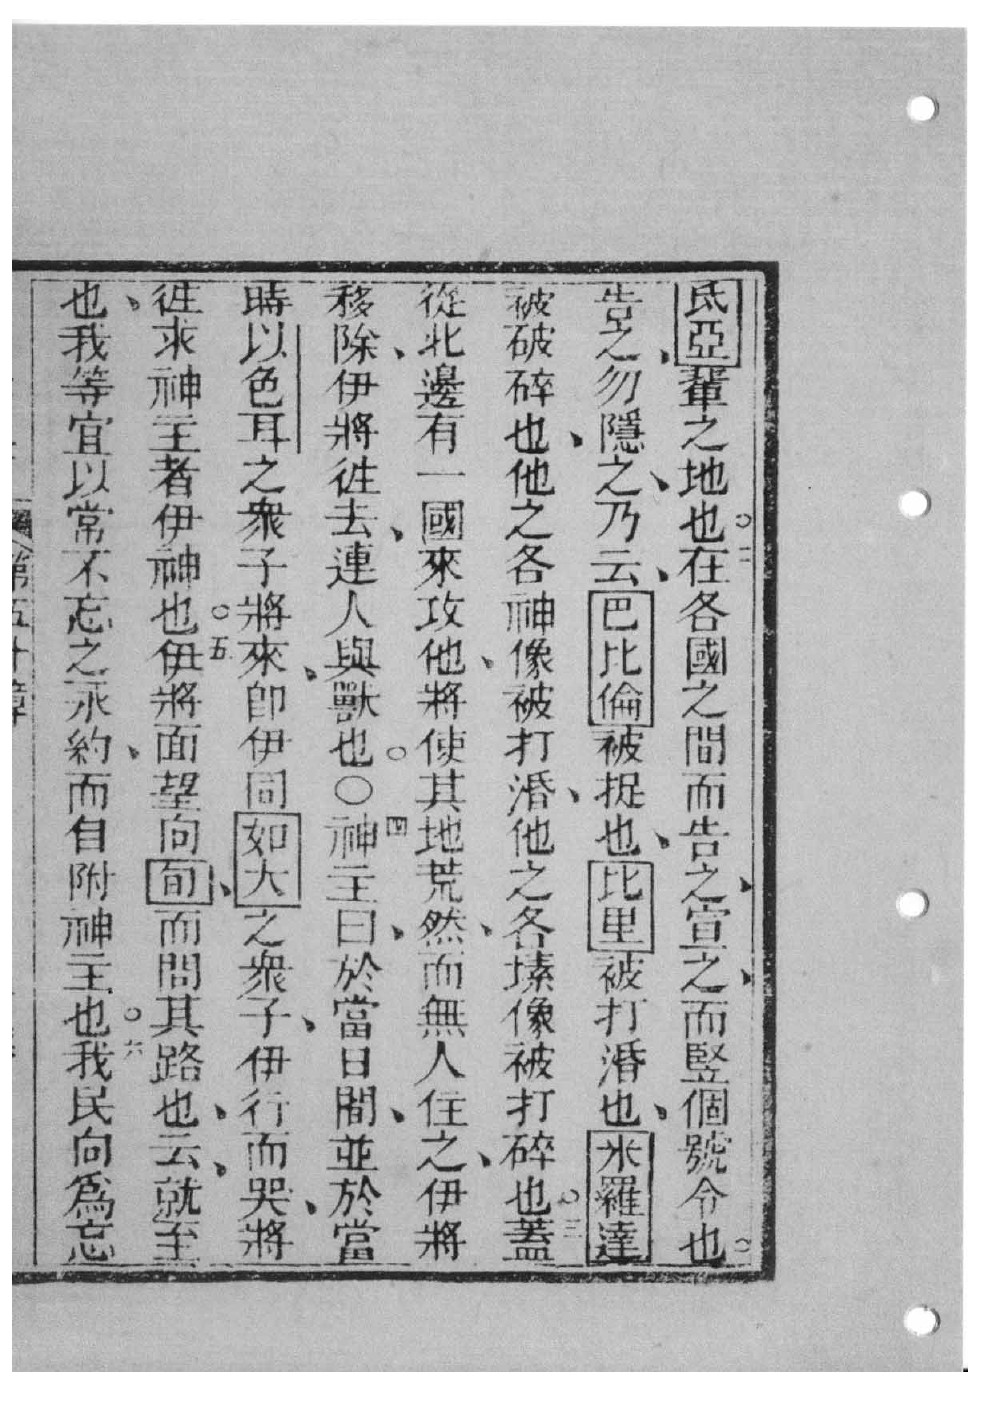 氐亞輩之地也○二在各國之間而告之、宣之、而竪個號令也○
告之、勿隱之、乃云、巴比倫被捉也、比里被打潃也、米羅達
被破碎也、他之各神像被打潃、他之各塐像被打碎也○三蓋
從北邊有一國來攻他、將使其地荒然、而無人住之、伊將
移除、伊將徃去、連人與獸也○〇四神主曰、於當日間、並於當
時以色耳之衆子將來、即伊同如大之衆子、伊行而哭、將
徃求神主者伊神也○五伊將面望向旬、而問其路也、云、就至
也、我等宜以常不忘之永約、而自附神主也○六我民向爲忘
第五十章